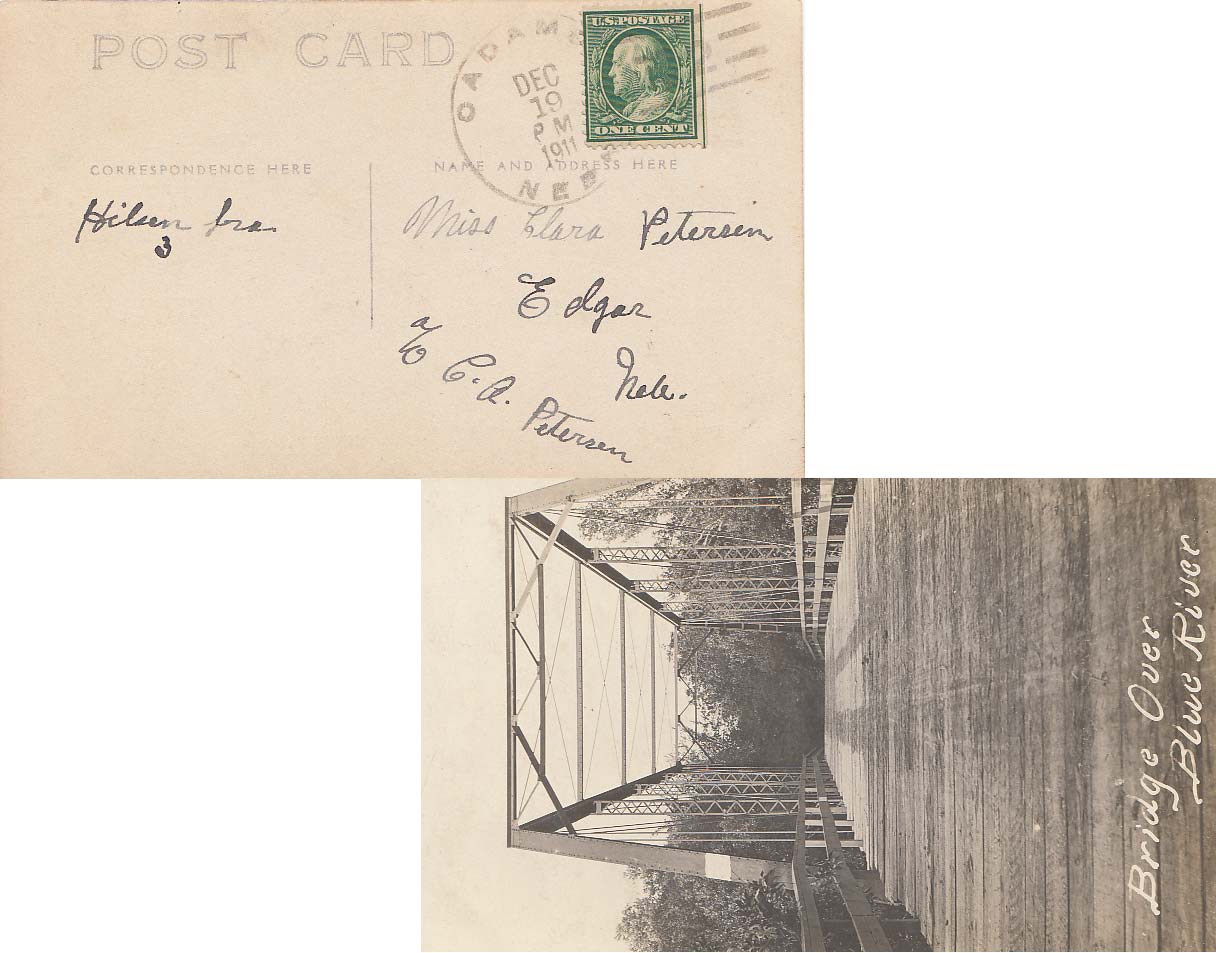 POST CARD
OADAMS
DEC
19
PM
1911
NEB
U.S. POSTAGE
ONE CENT
CORRESPONDENCE HERE
NAME AND ADDRESS HERE
3
Miss Clara Petersen
Edgar
Neb.
C. A. Petersen
Bridge Over
Blue River